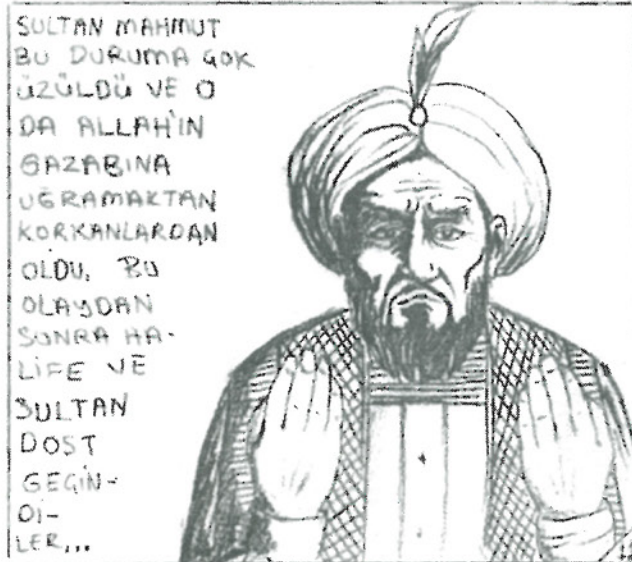 SULTAN MAHMUT
BU DURUMA ÇOK
ÜZÜLDÜ VE O
DA ALLAH'IN
GAZABINA
UĞRAMAKTAN
KORKANLARDAN
OLDU. BU
OLAYDAN
SONRA HA-
LİFE VE
SULTAN
DOST
GEÇİN-
Dİ-
LER...